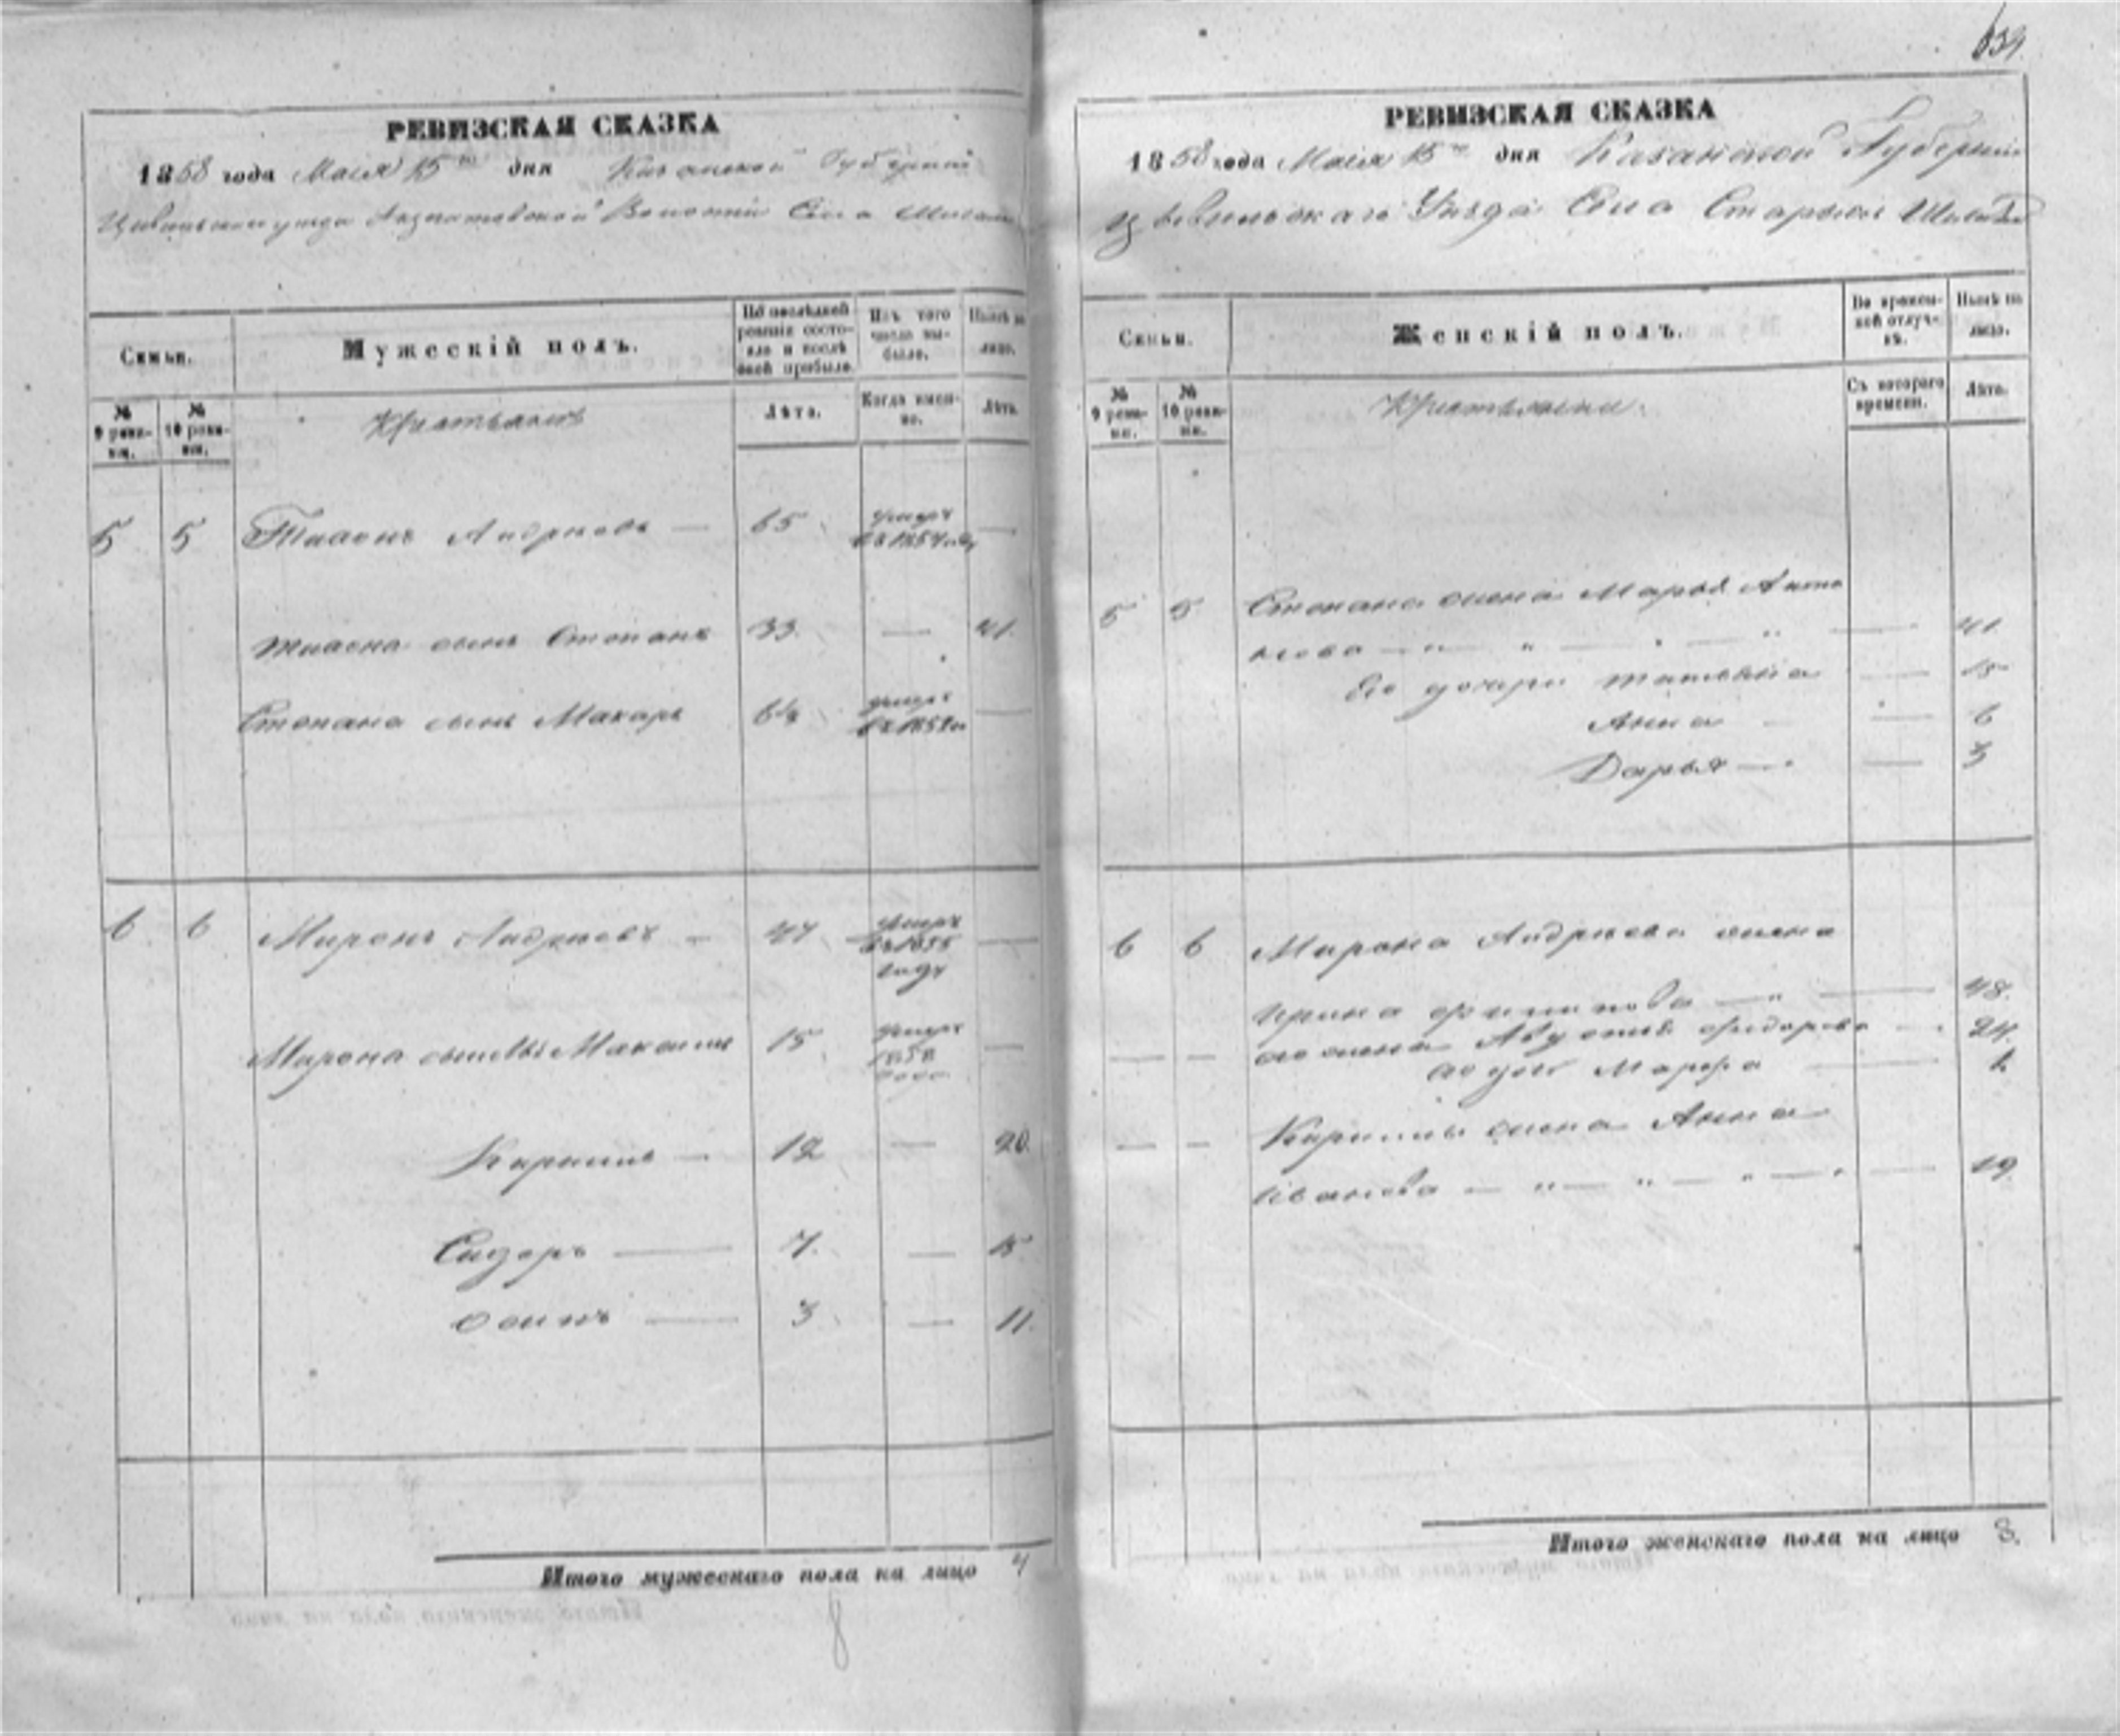 639.
РЕВИЗСКАЯ СКАЗКА
1858 года Маия 15го дня Казанской Губернии
Цивильскаго уезда Волости Села
Семьи.
Мужескій полъ.
По послѣдней ревизіи состояло и послѣ оной прибыло.
Изъ того числа выбыло.
Нынѣ на лицо.
№ 9 ревизіи.
№ 10 ревизіи.
Крестьяне
Лѣта.
Когда именно.
Лѣта.
5 5 Андреевъ — 65 умеръ въ 1854 году —
сынъ Степанъ 33. — 41.
Степана сынъ Макаръ умеръ —
6 6 Миронъ Андреевъ — 47 умеръ въ 1855 году —
Мирона сыновья Максимъ 15 умеръ 1858 —
— 12 — 20.
Сидоръ — 7. — 15
Осипъ — 3 — 11.
Итого мужескаго пола на лицо 4
8
РЕВИЗСКАЯ СКАЗКА
1858 года Маия 15го дня Казанской Губерніи
Цивильскаго Уѣзда Села Старыхъ
Семьи.
Женскій полъ.
Во временной отлучкѣ.
Нынѣ на лицо.
№ 9 ревизіи.
№ 10 ревизіи.
Крестьянки.
Съ котораго времени.
Лѣта.
5 5 Степана жена Марья Анто
нова — „ — „ — „ — 41
Его дочери Татьяна — 15
Анна — 6
Дарья — 3
6 6 Мирона Андреева жена
Ирина Филиппова — „ — 48.
— — его жена Федорова — 24.
его доч Марфа — 1
— — жена Анна
Иванова — „ — „ — „ — 19.
Итого женскаго пола на лицо 8.